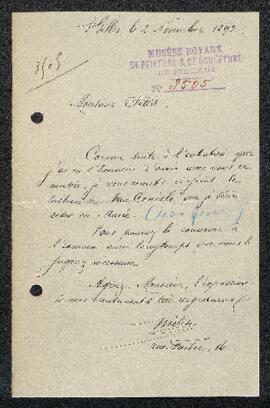 St Gilles, le 2 Novembre 1893.
MUSÉES ROYAUX
DE PEINTURE & DE SCULPTURE
DE BELGIQUE
N° 3505
3505
Monsieur Fétis
Comme suite à l'entretien que
j'ai eu l'honneur d'avoir avec vous ce
matin, je vous remets ci-joint le
tableau de
Vous pouvez le conserver à
l'examen aussi longtemps que vous le
jugerez nécessaire.
Agréez, Monsieur, l'expression
de mes sentiments
rue 16